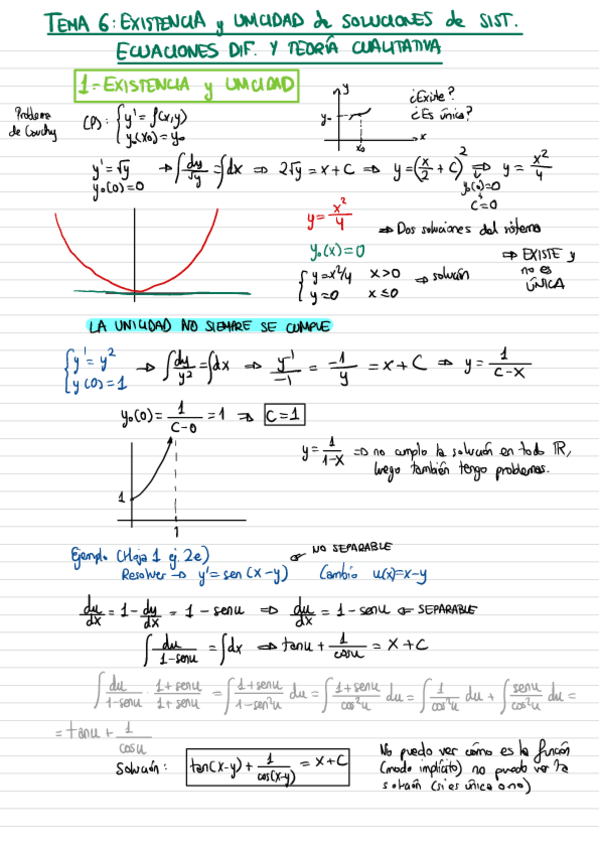 TEMA 6: EXISTENCIA y UNICIDAD de SOLUCIONES de SIST.
ECUACIONES DIF. Y TEORÍA CUALITATIVA
1.- EXISTENCIA y UNICIDAD
Problema de Cauchy
(P): { y' = f(x,y)
y₀(x₀) = y₀
y
y₀
x₀
x
¿Existe?
¿Es única?
y' = √y → ∫ dy/√y = ∫dx ⇒ 2√y = x + C ⇒ y = (x/2 + C)² ⇒ y = x²/4
y₀(0) = 0
y₀(0) = 0
C = 0
y = x²/4
y₀(x) = 0
⇒ Dos soluciones del sistema
⇒ EXISTE y no es ÚNICA
{ y = x²/4 x > 0 → solución
y = 0 x ≤ 0
LA UNICIDAD NO SIEMPRE SE CUMPLE
{ y' = y² → ∫ dy/y² = ∫dx ⇒ y⁻¹/-1 = -1/y = x + C ⇒ y = 1/(C-x)
y(0) = 1
y₀(0) = 1/(C-0) = 1 ⇒ C = 1
1
1
y = 1/(1-x) ⇒ no amplo la solución en todo ℝ,
luego también tengo problemas.
Ejemplo (Hoja 1 ej. 2e)
NO SEPARABLE
Resolver → y' = sen(x-y) Cambio u(x) = x-y
du/dx = 1 - dy/dx = 1 - senu ⇒ du/dx = 1 - senu ← SEPARABLE
∫ du/(1-senu) = ∫dx ⇒ tanu + 1/cosu = x + C
∫ du/(1-senu) · (1+senu)/(1+senu) = ∫ (1+senu)/(1-sen²u) du = ∫ (1+senu)/cos²u du = ∫ 1/cos²u du + ∫ senu/cos²u du =
= tanu + 1/cosu
Solución: tan(x-y) + 1/cos(x-y) = x + C
No puedo ver cómo es la función
(modo implícito) no puedo ver la
solución (si es única o no)